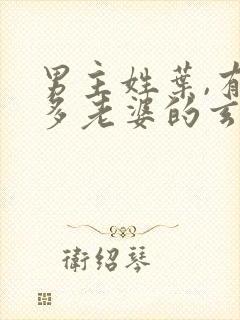 男主姓葉,有
多老婆的玄
衛紹琴